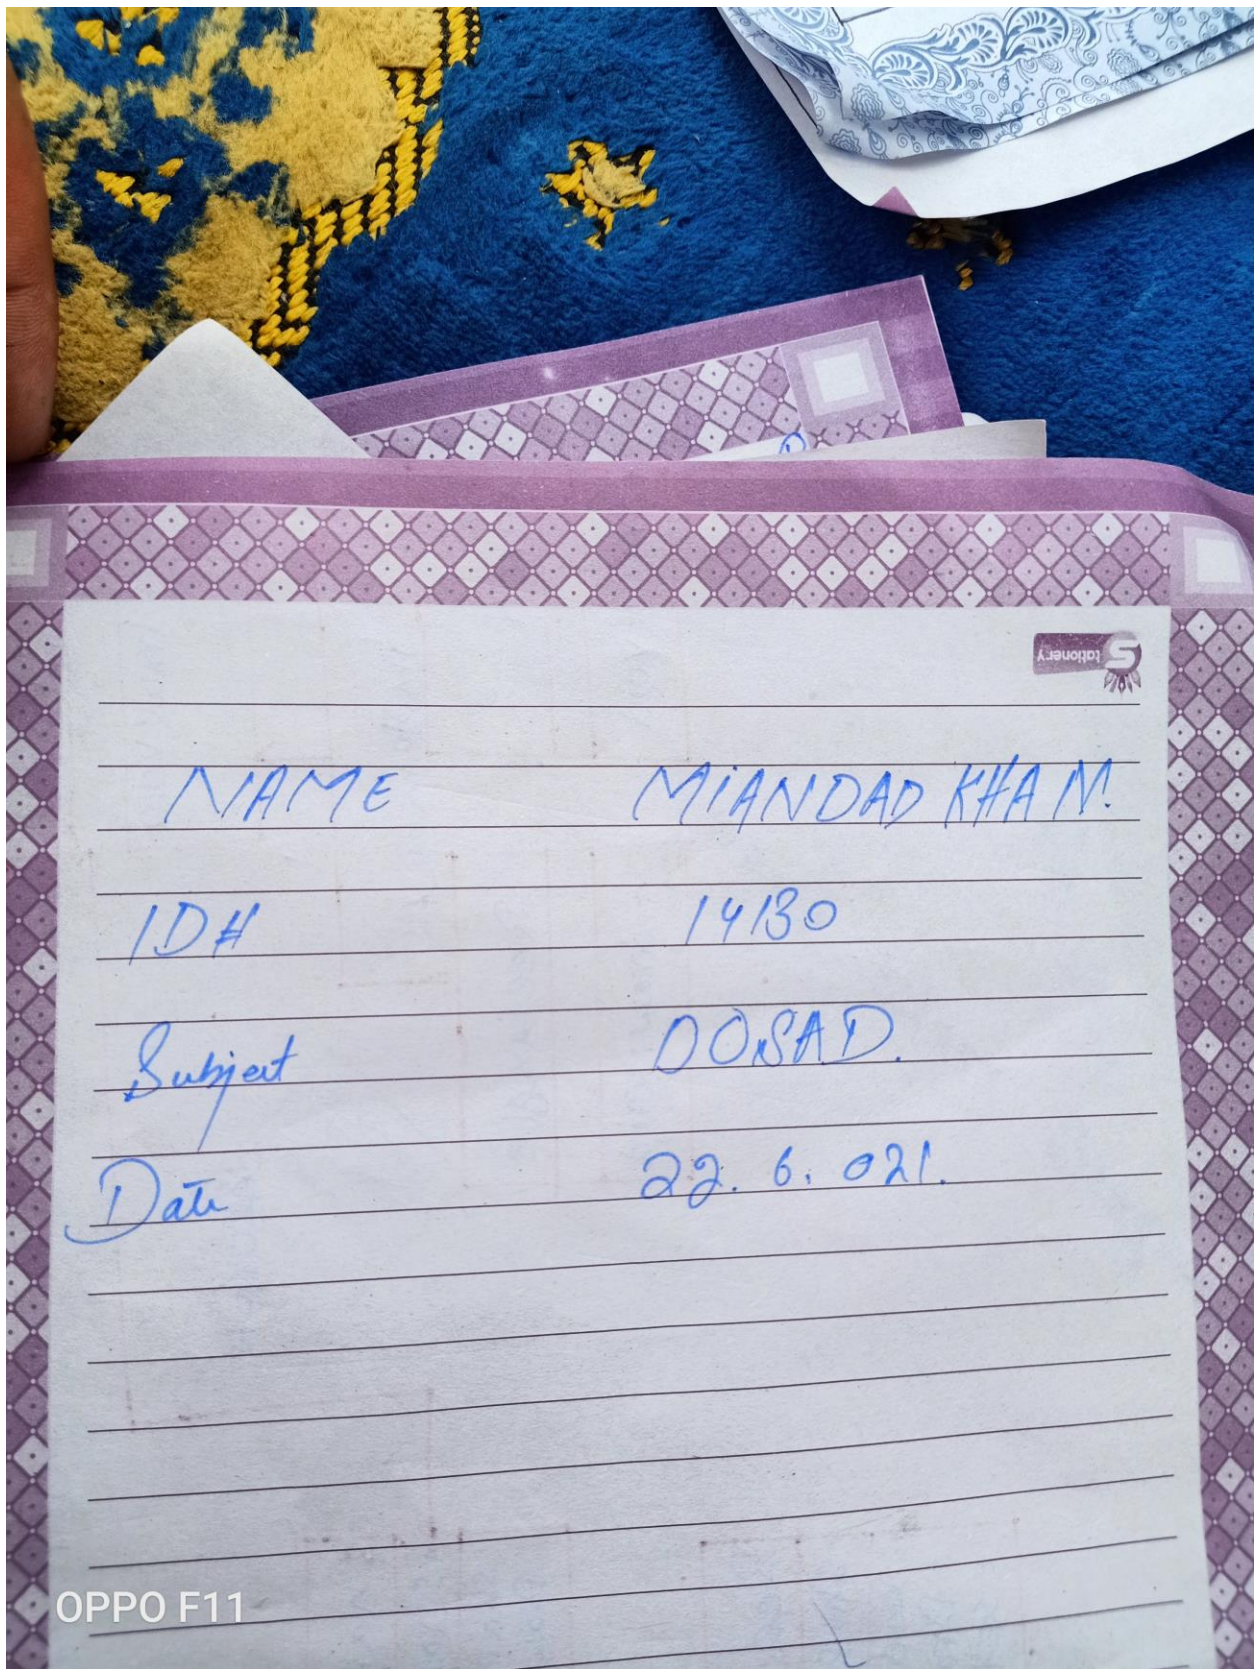 Stationery
NAME MiANDAD KHAN.
ID# 14130
Subject OOSAD.
Date 22. 6. 021.
OPPO F11